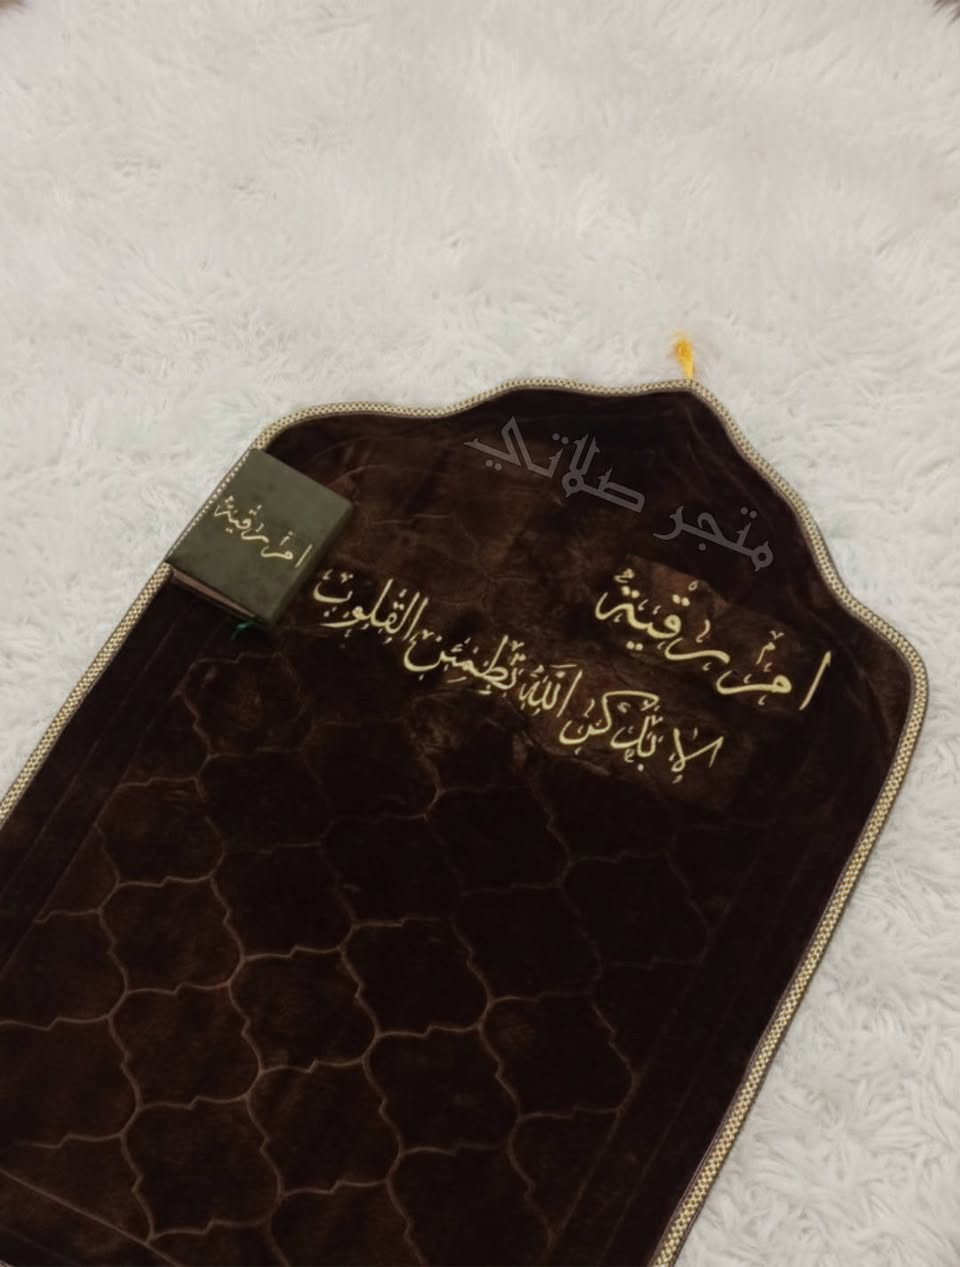 متجر صلاتي
ام رقية
ام رقية
الا بذكر الله تطمئن القلوب